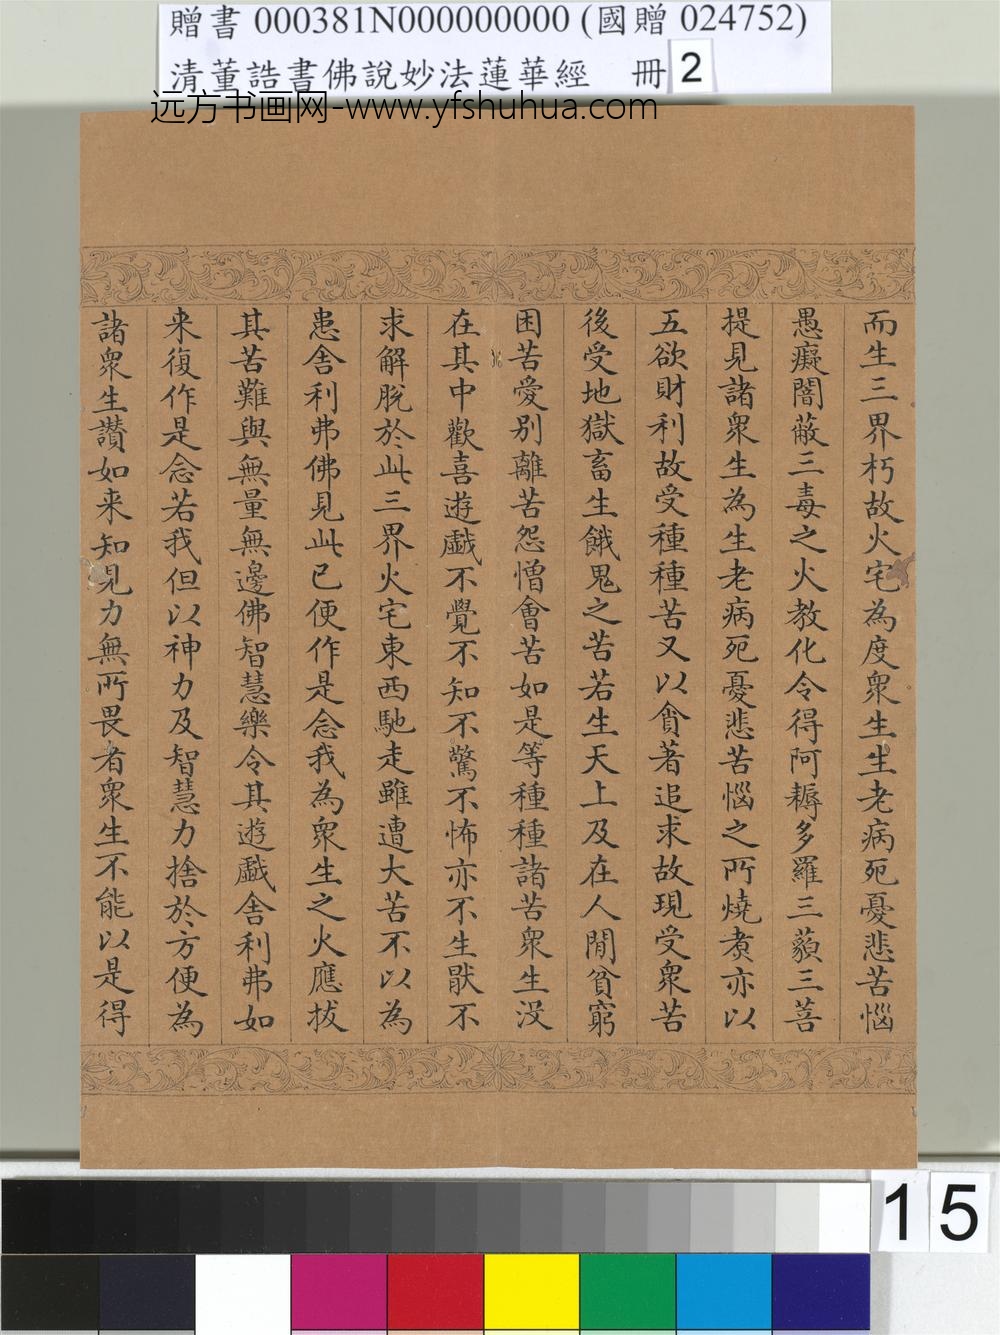 贈書 000381N000000000 (國贈 024752)
清董誥書佛說妙法蓮華經 冊 2
远方书画网-www.yfshuhua.com
而生三界朽故火宅為度衆生生老病死憂悲苦惱
愚癡闇蔽三毒之火教化令得阿耨多羅三藐三菩
提見諸衆生為生老病死憂悲苦惱之所燒煮亦以
五欲財利故受種種苦又以貪著追求故現受衆苦
後受地獄畜生餓鬼之苦若生天上及在人間貧窮
困苦愛別離苦怨憎會苦如是等種種諸苦衆生没
在其中歡喜遊戲不覺不知不驚不怖亦不生猒不
求解脫於此三界火宅東西馳走雖遭大苦不以為
患舍利弗佛見此已便作是念我為衆生之火應拔
其苦難與無量無邊佛智慧樂令其遊戲舍利弗如
来復作是念若我但以神力及智慧力捨於方便為
諸衆生讃如来知見力無所畏者衆生不能以是得
15